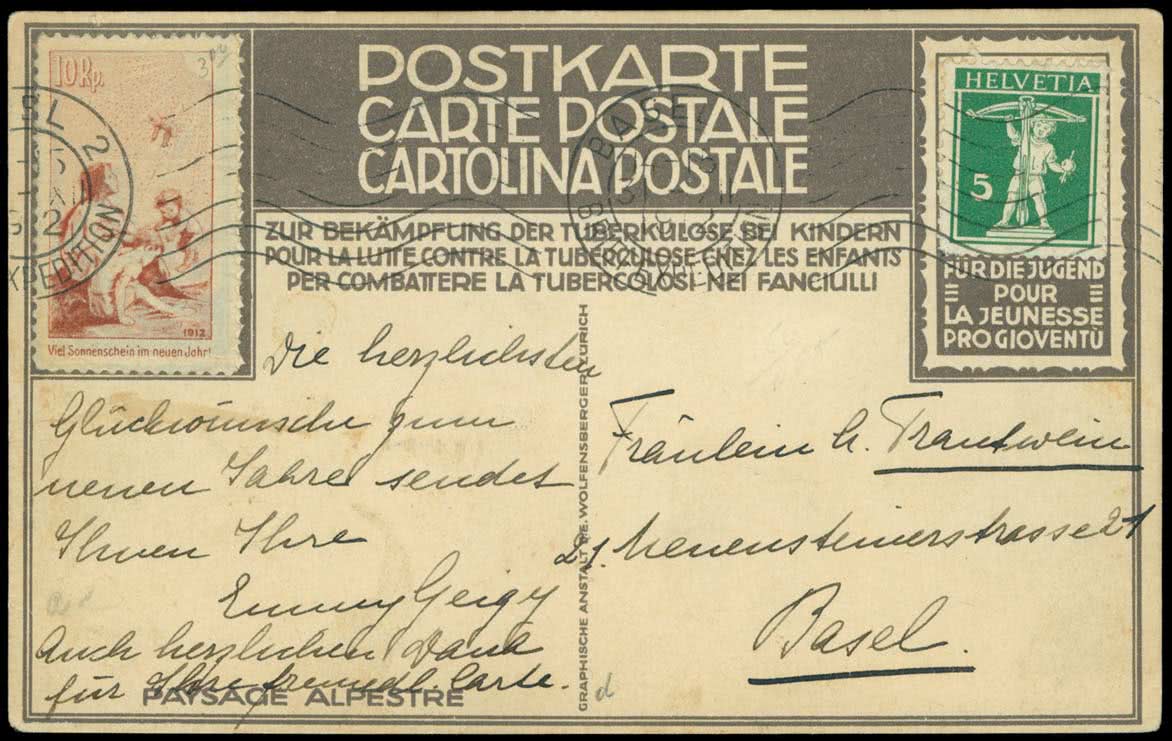 POSTKARTE
CARTE POSTALE
CARTOLINA POSTALE
ZUR BEKÄMPFUNG DER TUBERKULOSE BEI KINDERN
POUR LA LUTTE CONTRE LA TUBERCULOSE CHEZ LES ENFANTS
PER COMBATTERE LA TUBERCOLOSI NEI FANCIULLI
10 Rp.
300
1912
Viel Sonnenschein im neuen Jahr!
2
EXPEDITION
BASEL
HELVETIA
5
FÜR DIE JUGEND
POUR
LA JEUNESSE
PRO GIOVENTÙ
Die herzlichsten
Glückwünsche zum
neuen Jahre sendet
Ihnen Ihre
Emmy Geigy
Auch herzlichen Dank
für Ihre freundl. Carte.
PAYSAGE ALPESTRE
GRAPHISCHE ANSTALT J.E. WOLFENSBERGER ZÜRICH
d
Fräulein h. Trautwein
21 Neuensteinerstrasse 21
Basel.